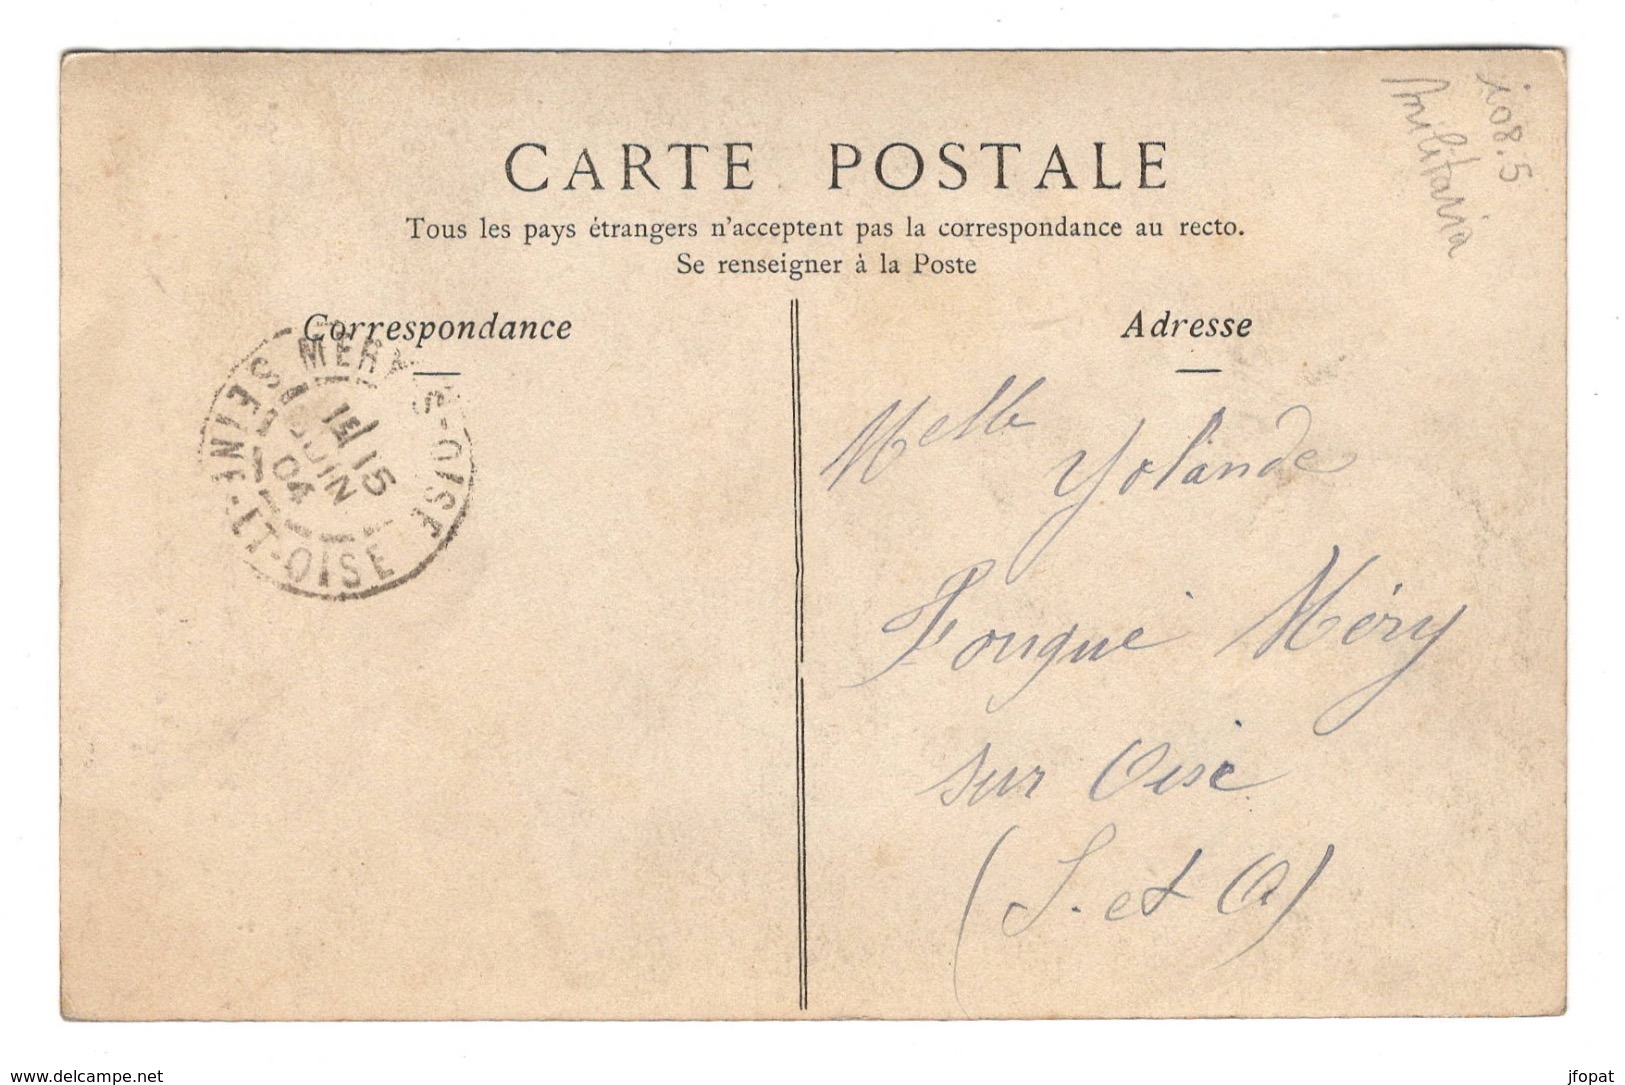 CARTE POSTALE
Tous les pays étrangers n'acceptent pas la correspondance au recto.
Se renseigner à la Poste
108.5
Militaria
Correspondance
Adresse
MERY-S-OISE
15
JUIN
04
SEINE-ET-OISE
Melle Yolande
Fouqué Méry
sur Oise
(S. et O)
www.delcampe.net
jfopat